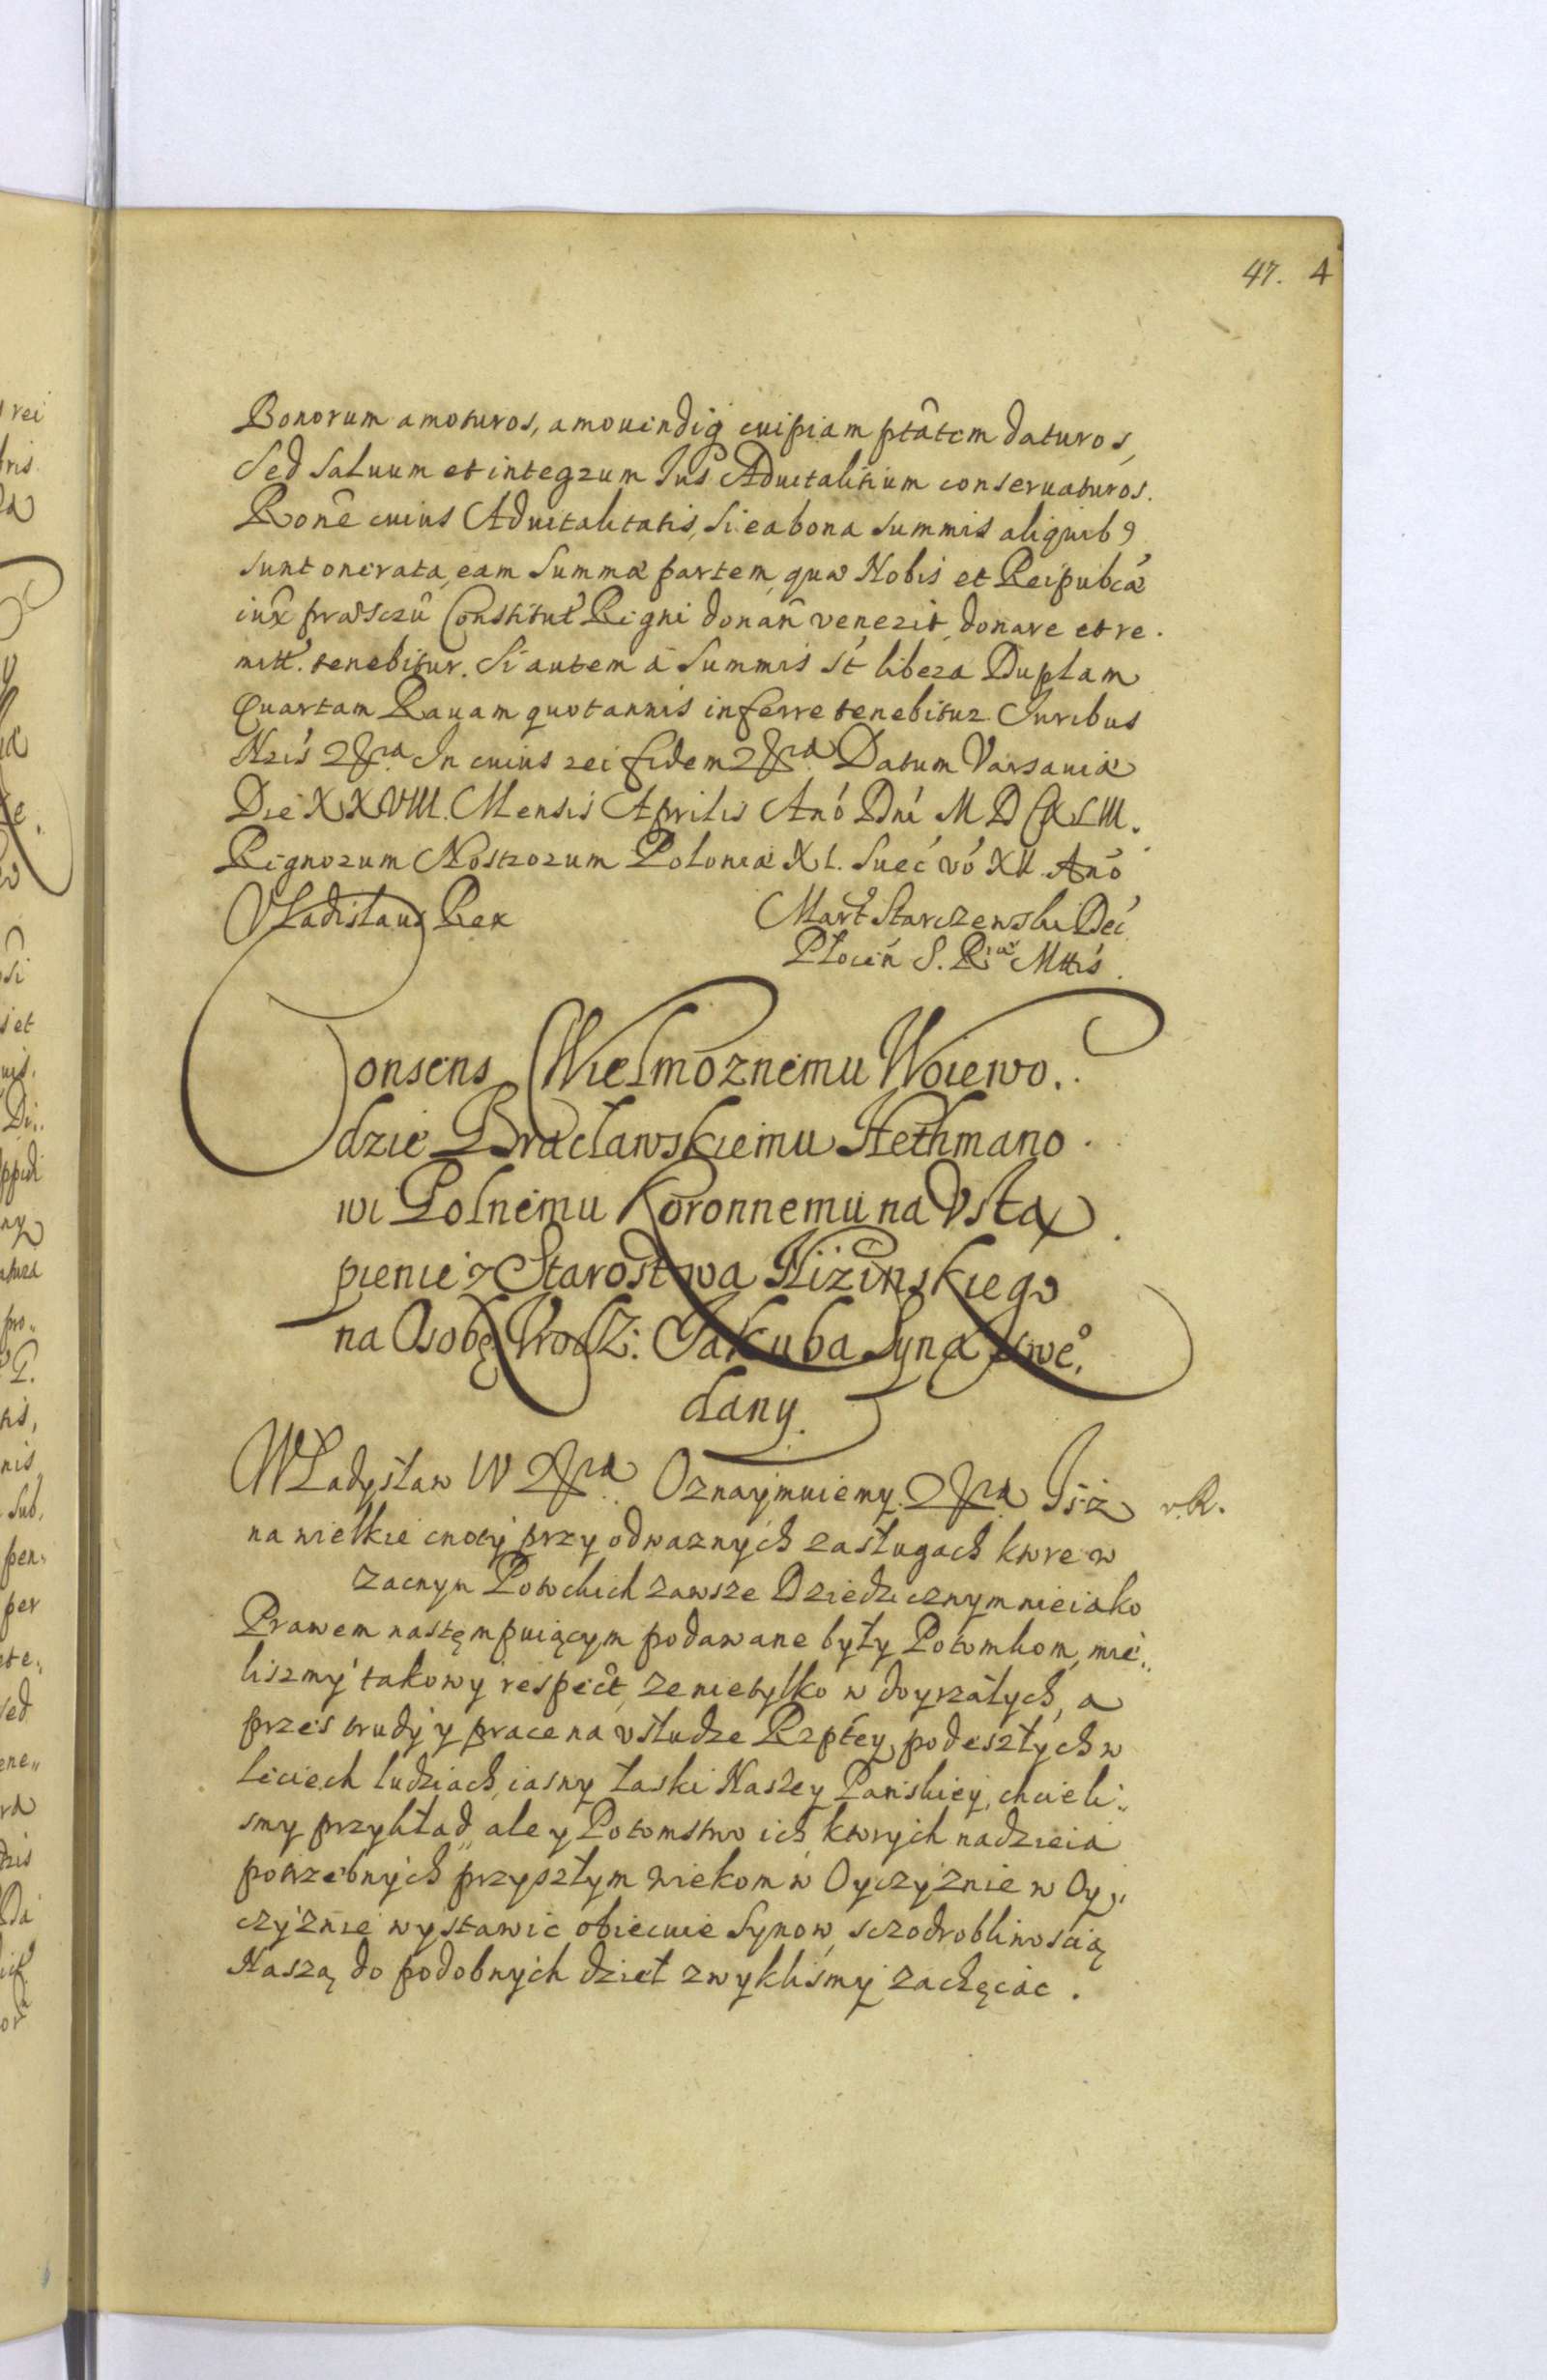 47. 4
Bonorum amoturos, amouendiq cuipiam ptãtem daturos,
Sed saluum et integrum Jus Aduitalitium conseruaturos.
Rone cuius Aduitalitatis, si ea bona summis aliquib9
sunt onerata, eam Summæ partem, quæ Nobis et Reipublcæ
iux præscru Constitut Regni donan venerit, donare et re.
mitt. tenebitur. Si autem à Summis st libera Duplam
Quartam Rauam quotannis inferre tenebitur. Juribus
Nris &ra In cuius rei fidem &ra Datum Varsauiæ
Die XXVIII. Mensis Aprilis Ano Dni M D C XLIII.
Regnorum Nostrorum Poloniæ XI. Suec vo XII. Ano
Vladislaus Rex Mart Starczewski Dec
Plocen S. R. Mttis
Consens Wielmoznemu Woiewo.
dzie Bracławskiemu Hethmano
wi Polnemu Koronnemu na Vstą
pienie z Starostwa Niżinskiego
na Osobę Vrodz: Jakuba Syna swe°
dany.
Władysław IV &ra Oznaymuiemy &ra Jsz v.R.
na wielkie cnoty przy odwaznych zasługach ktore w
zacnym Potockich zawsze Dziedzicznym nieiako
Prawem nastęmpuiącym podawane były Potomkom, mie„
liszmy takowy respect, ze nie tylko w doyrzałych, a
przes trudy y prace na vsłudze Rzptey, podeszłych w
leciech ludziach, iasny łaski Naszey Panskiey, chcieli„
smy przykład, ale y Potomstwo ich ktorych nadzieia
potrzebnych przyszłym wiekom w Oyczyznie w Oy„
czyznie wystawic obiecuie Synow, sczodrobliwoscią
Naszą do podobnych dzieł zwyklismy zachęcac.